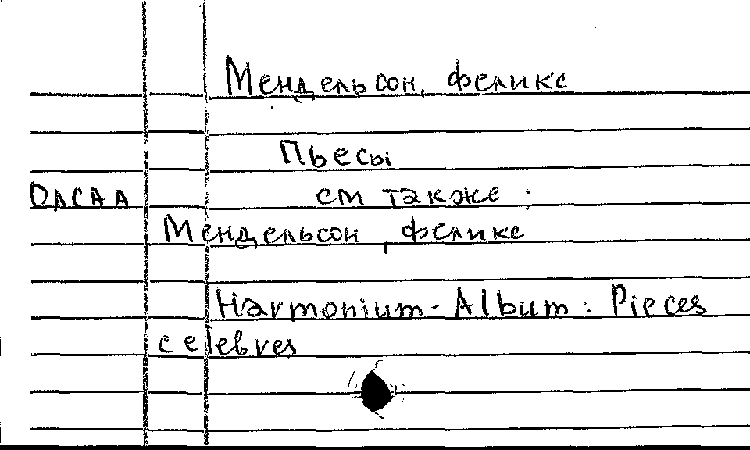 Мендельсон, феликс
Пьесы
ОЛСАА см также:
Мендельсон, феликс
Harmonium-Album: Pieces
celebres